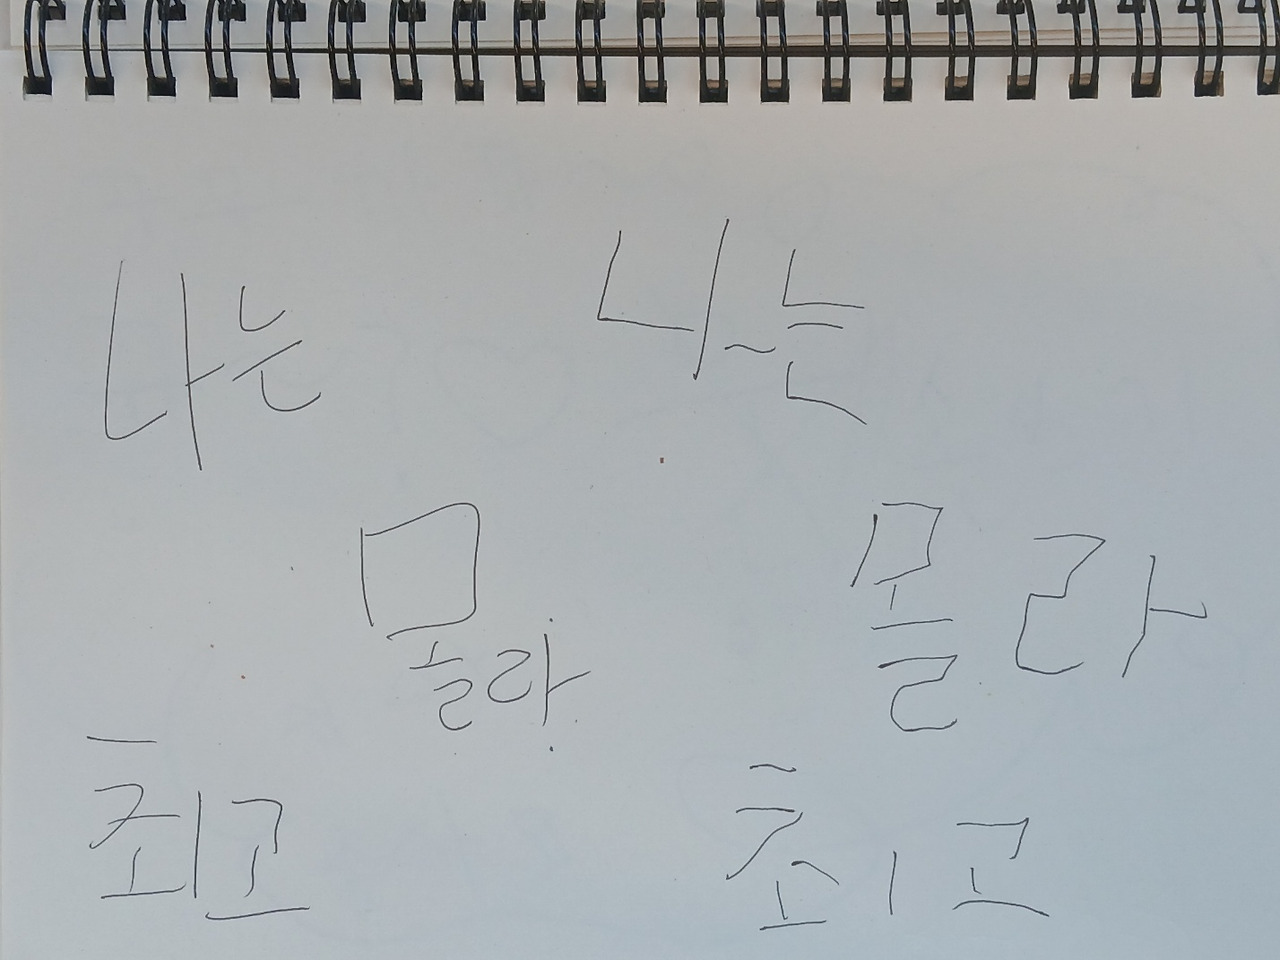 나는 나는
몰라 몰라
최고 최고